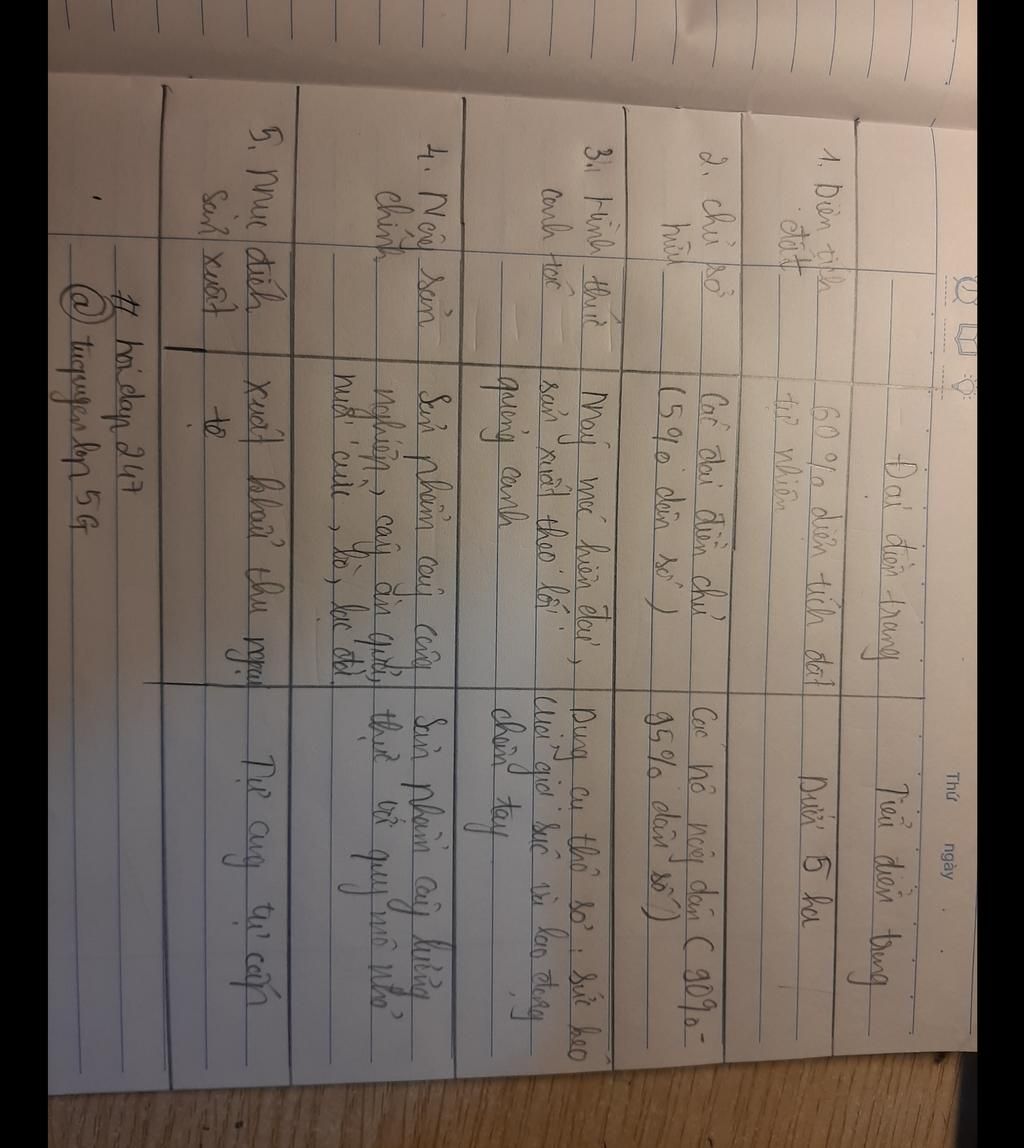 Thứ ngày
Đại điền trang Tiểu điền trang
1. Diện tích 60% diện tích đất Dưới 5 ha
đất tự nhiên
2. chủ sở Các đại điền chủ Các hộ nông dân (90%-
hữu (5% dân số) 95% dân số)
3. Hình thức Máy móc hiện đại, Dụng cụ thô sơ, sức kéo
canh tác sản xuất theo lối của gia súc và lao động
quảng canh chân tay
4. Nông sản Sản phẩm cây công Sản phẩm cây lương
chính nghiệp, cây ăn quả, thực với quy mô nhỏ
nuôi cừu, bò, lạc đà
5. Mục đích xuất khẩu thu ngoại Tự cung tự cấp
sản xuất tệ
# hoidap247
@ tuquyenlop5G